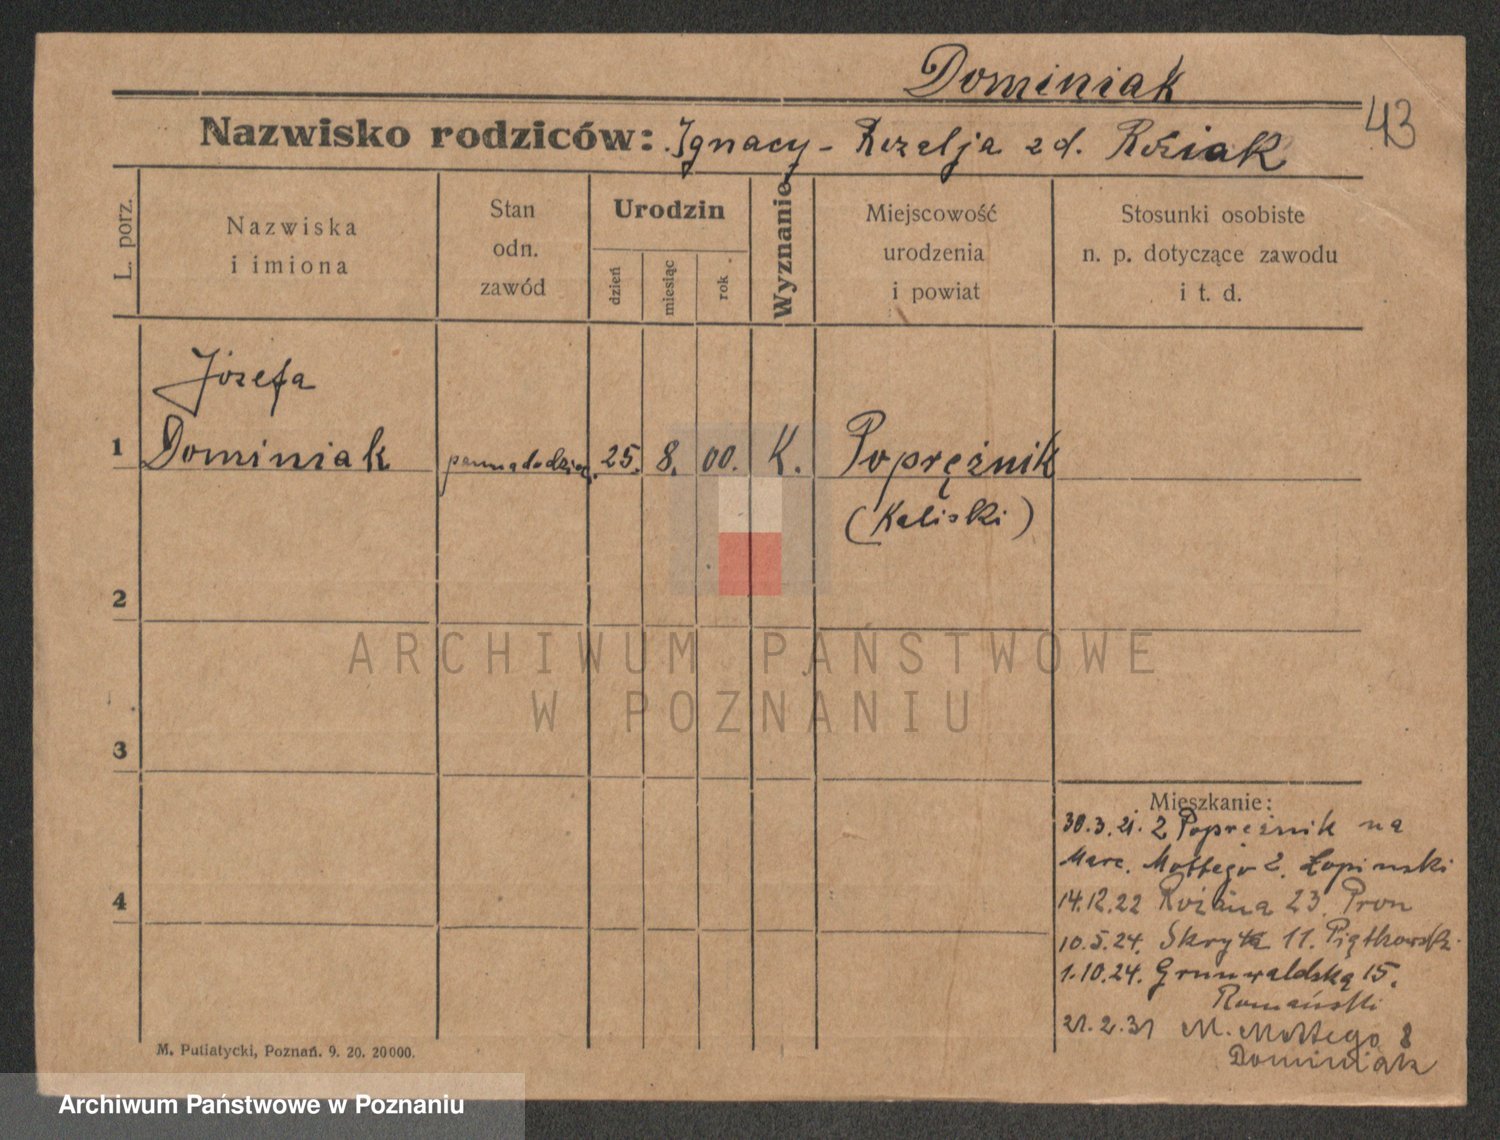 Dominiak
43
Nazwisko rodziców: Ignacy - Rozalja zd. Roziak
L. porz.
Nazwiska
i imiona
Stan
odn.
zawód
Urodzin
dzień
miesiąc
rok
Wyznanie
Miejscowość
urodzenia
i powiat
Stosunki osobiste
n. p. dotyczące zawodu
i t. d.
Józefa
1 Dominiak 25. 8. 00. K. Popręźnik
(Kaliski)
2
ARCHIWUM PAŃSTWOWE
W POZNANIU
3
Mieszkanie:
30.3.21. z Popręźnik na
Marc. Mottego 2. Łopinski
4
14.12.22 Różana 23. Pron
10.5.24. Skryta 11. Piątkowsk.
1.10.24. Grunwaldska 15.
Romański
21.2.31 M. Mottego 8
Dominiak
M. Putiatycki, Poznań. 9. 20. 20000.
Archiwum Państwowe w Poznaniu